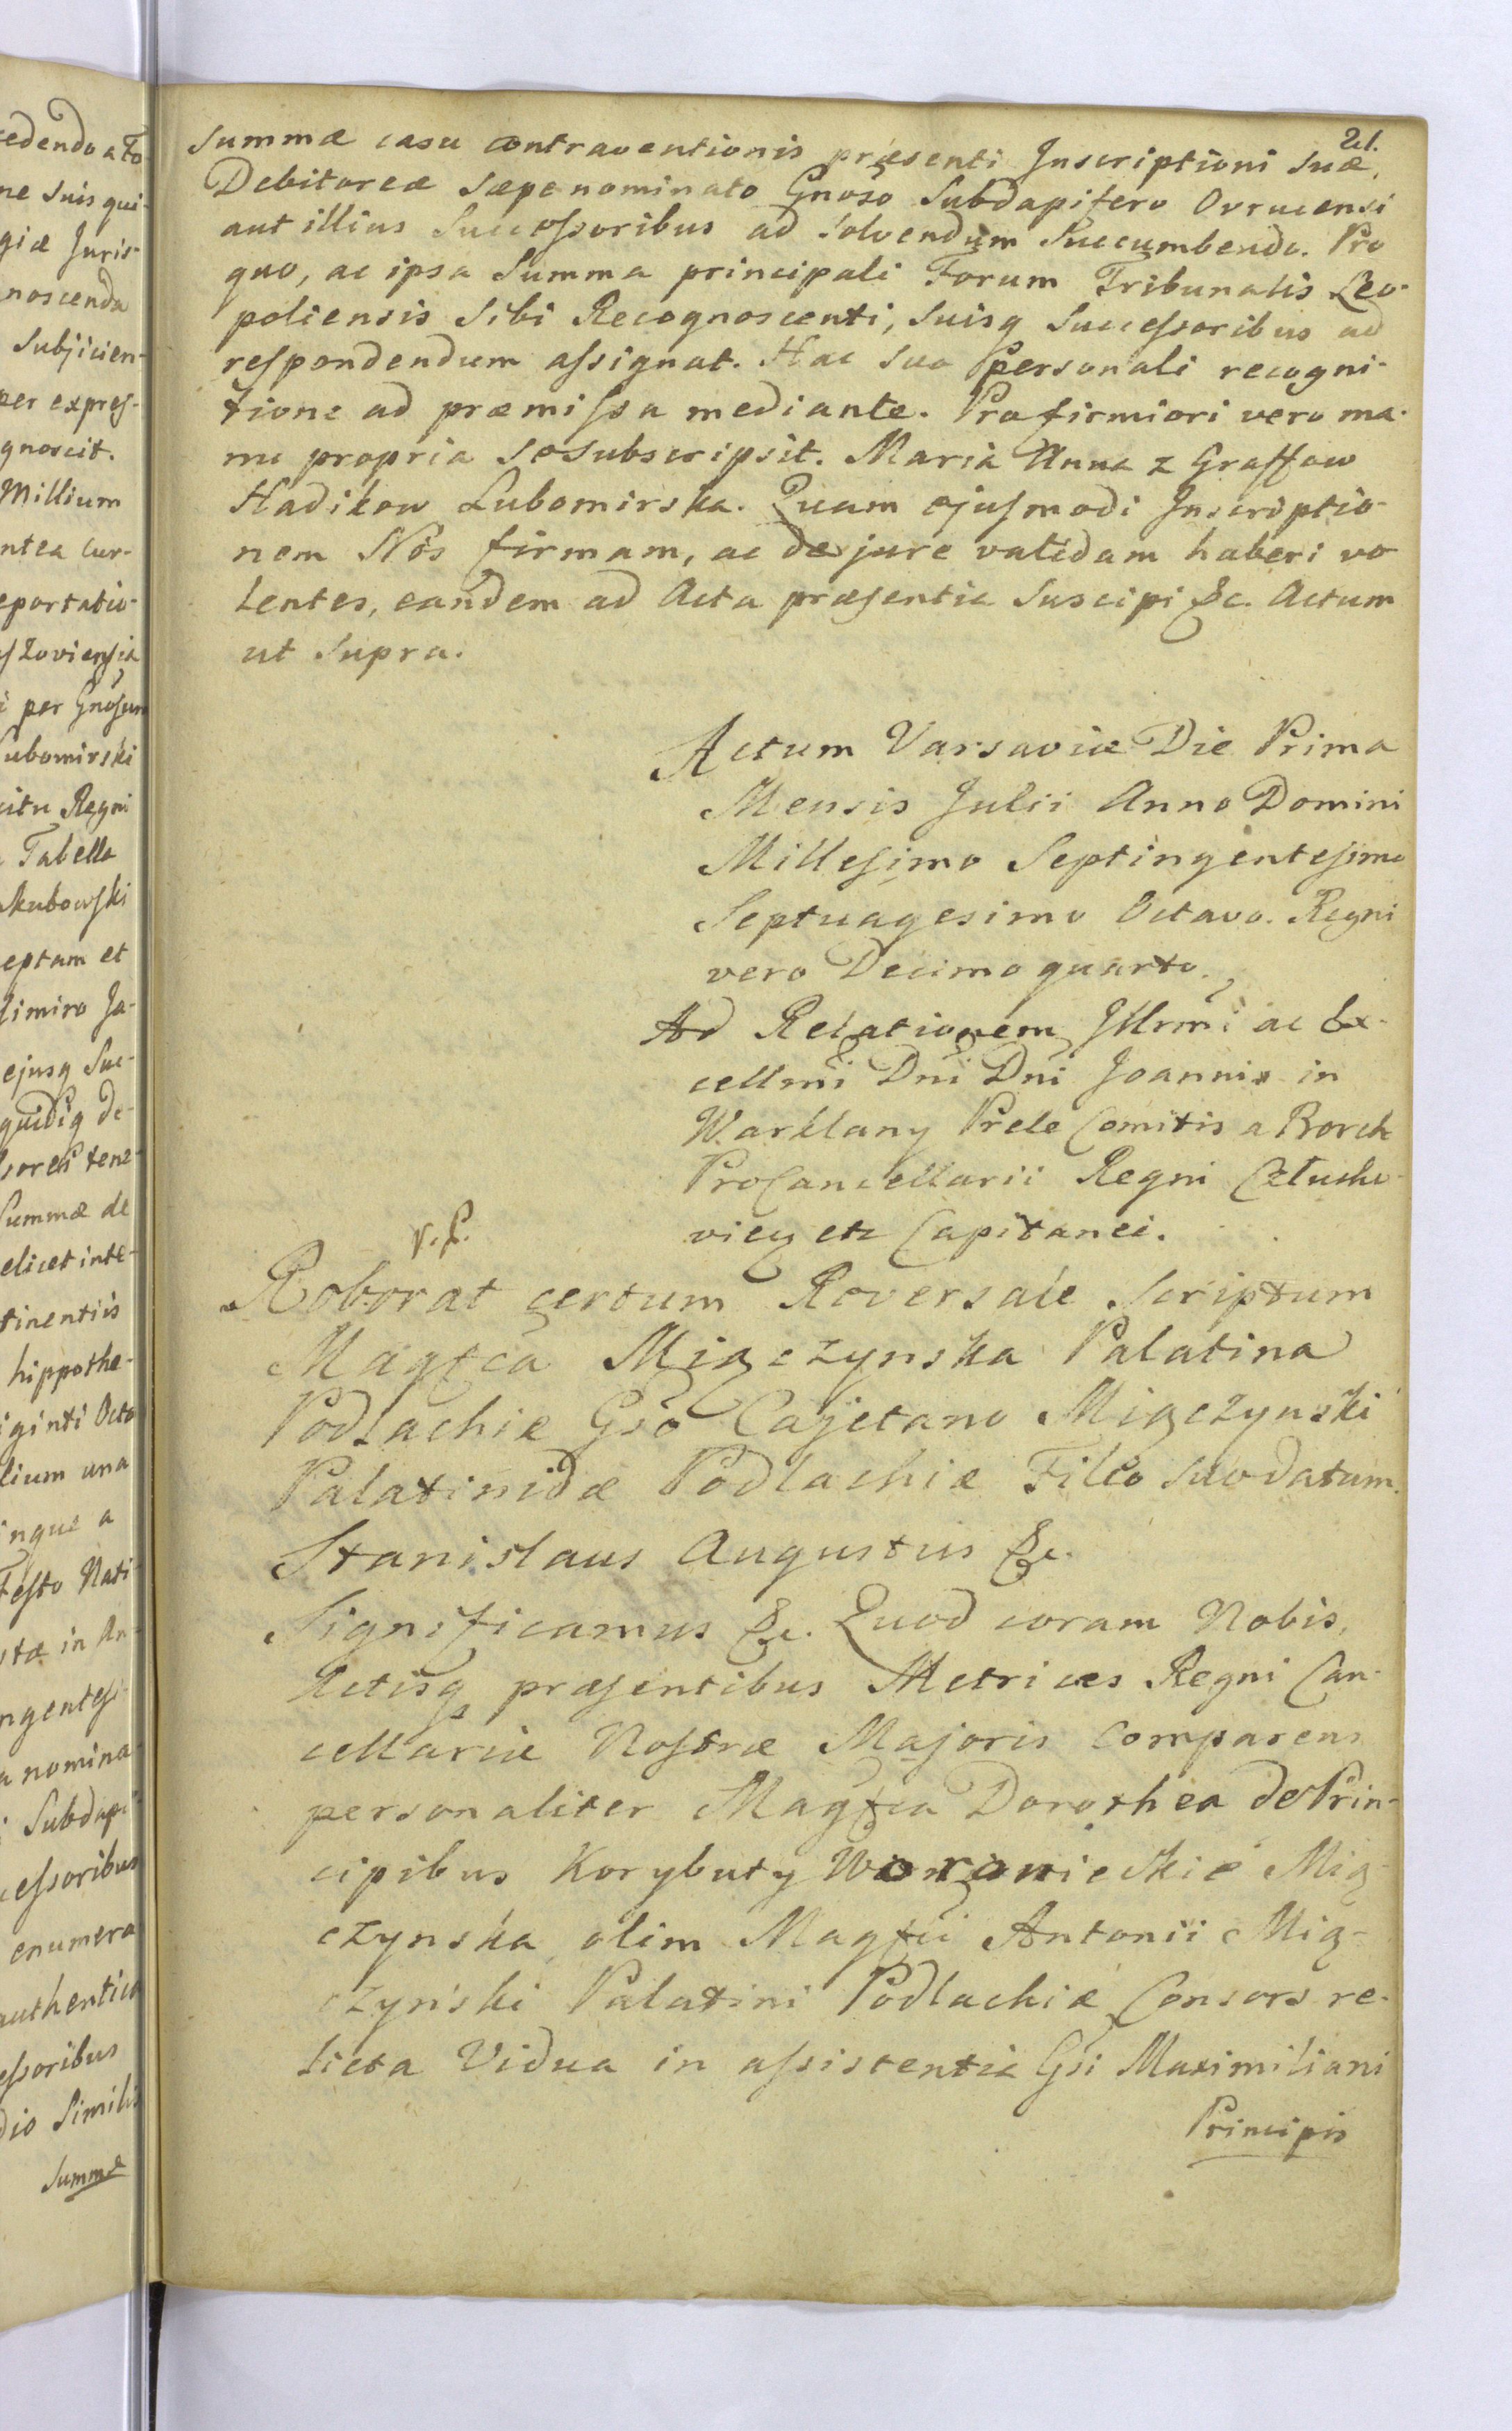 edendo a Fo
ne suis qui-
giæ Juris-
noscenda
subjicien-
per expreſ-
gnoscit.
Millium
ntea cur-
eportatio-
ſzoviensia
i per Gnoſum
ubomirski
itu Regni
Tabella
akubowſki
eptam et
limiro Ja-
ejusq Suc-
quidiq de-
sores tene-
Summæ de
elicet inte-
tinentiis
hippothe-
iginti Octo
lium una
ingue a
Feſto Nati-
stæ in An-
ngenteſi-
a nomina-
Subdapi-
ceſsoribus
enumera
authentica
eſsoribus
dio Simili
Summæ
21.
Summæ casu contraventionis præsenti Inscriptioni suæ,
Debitoreæ sæpenominato Gnoso Subdapifero Ovrucensi
aut illius Succeſsoribus ad solvendum succumbendo. Pro
quo, ac ipsa Summa principali Forum Tribunalis Leo-
poliensis Sibi Recognoscenti, suisq Succeſsoribus ad
reſpondendum aſsignat. Hac sua Personali recogni-
tione ad præmiſsa mediante. Pro firmiori vero ma-
nu propria se subscripsit. Maria Anna z Graffow
Hadikow Lubomirska. Quam ejuſmodi Inscriptio-
nem Nos firmam, ac de jure validam haberi vo
lentes, eandem ad Acta præſentia Suscipi &c. Actum
ut Supra.
Actum Varsaviæ Die Prima
Mensis Julii Anno Domini
Milleſimo Septingenteſimo
Septuagesimo Octavo. Regni
vero Decimo quarto.
Ad Relationem Illrmi ac Ex-
cellmi Dni Dni Joannis in
Warklany Prele Comitis a Borch
ProCancellarii Regni Cztucho-
viey etc Capitanei.
Roborat certum Roversale Scriptum
Magfca Miączynska Palatina
Podlachiæ Gso Cajetano Miączynski
Palatinidæ Podlachiæ Filio suo datum.
Stanislaus Augustus &c.
Significamus &c. Quod coram Nobis,
Actisq præſentibus Metrices Regni Can-
cellariæ Noſtræ Majoris Comparens
personaliter Magfca Dorothea de Prin-
cipibus Korybuty Woronieckie Mią-
czynska, olim Magfci Antonii Mią-
czynski Palatini Podlachiæ Consors re-
licta Vidua in aſsistentia Gsi Maximiliani
Principis